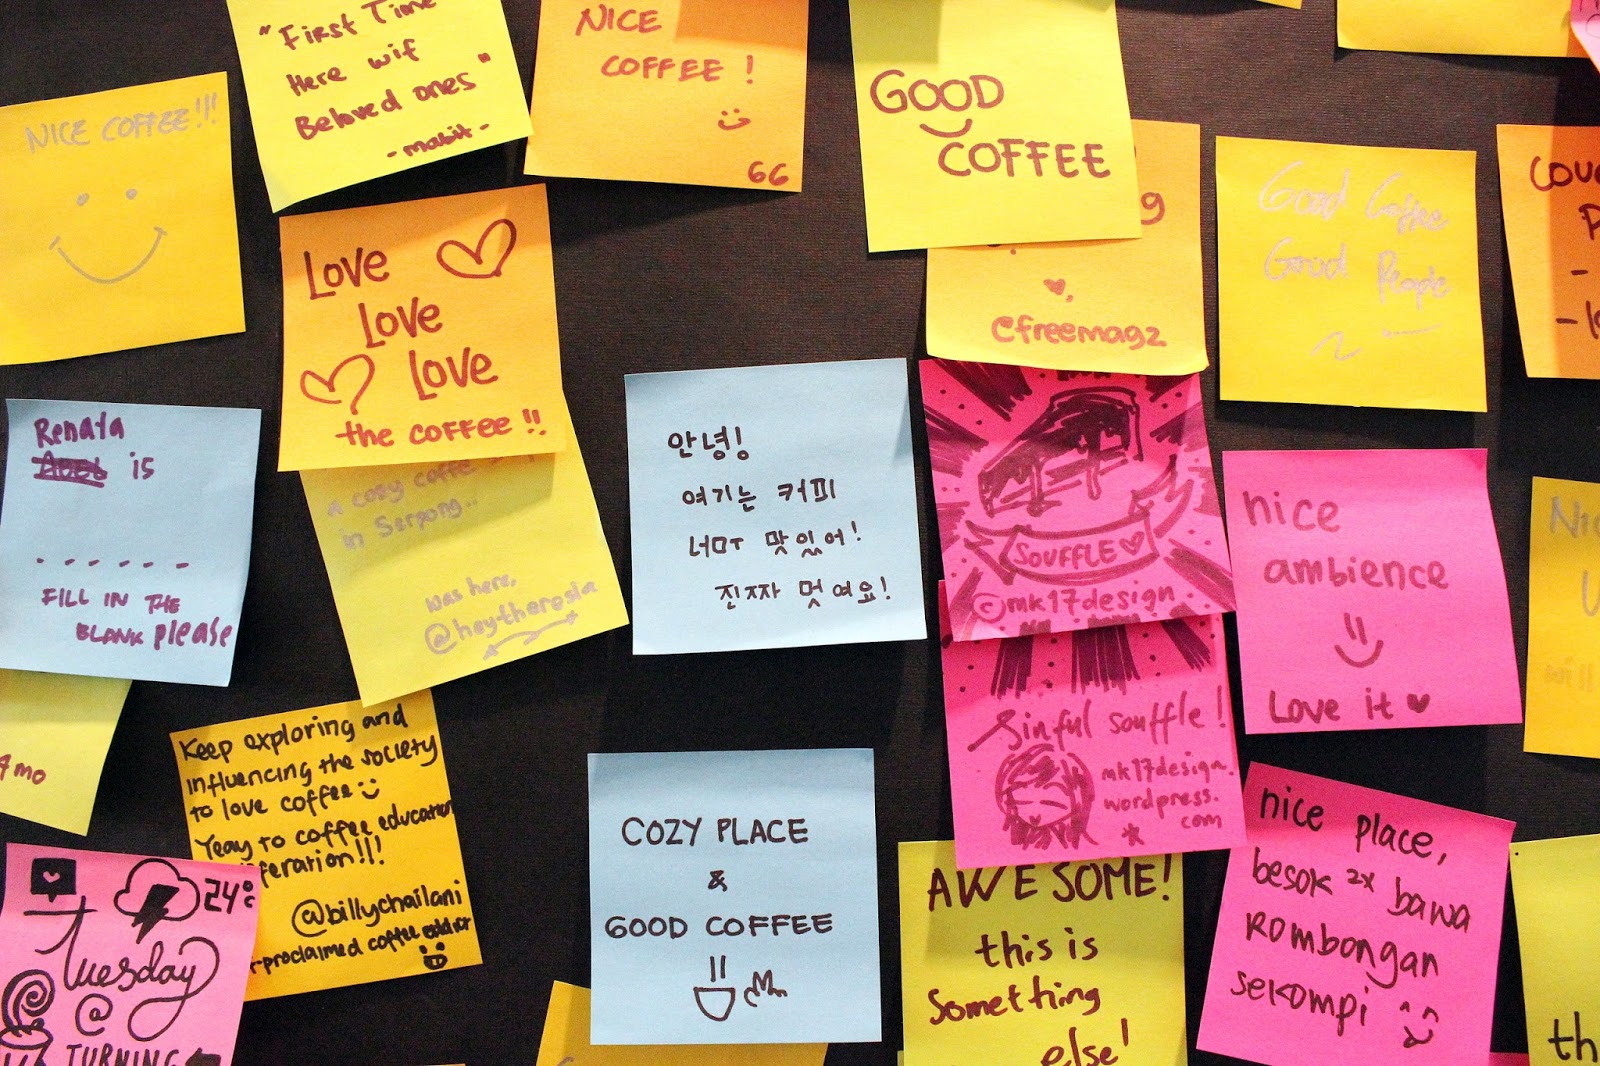 "First Time
Here wif
Beloved ones"
- mabit -
NICE
COFFEE !
66
GOOD
COFFEE
NICE COFFEE!!!
Good Coffee
Good People
Love
Love
Love
the COFFEE !!
@freemagz
Renata
is
......
FILL IN THE
BLANK please
a cosy coffe
in Serpong..
was here,
@heytheresia
안녕!
여기는 커피
너무 맛있어!
진짜 멋여요!
SOUFFLE
©mk17design
Sinful souffle!
mk17design.
wordpress.
com
nice
ambience
Love it
4 mo
Keep exploring and
influencing the society
to love coffee
Yeay to coffee education
@billychailani
proclaimed coffee addict
24°C
Tuesday
@
TURNING
COZY PLACE
&
GOOD COFFEE
AWESOME!
this is
something
else!
nice place,
besok 2x bawa
Rombongan
sekompi
th